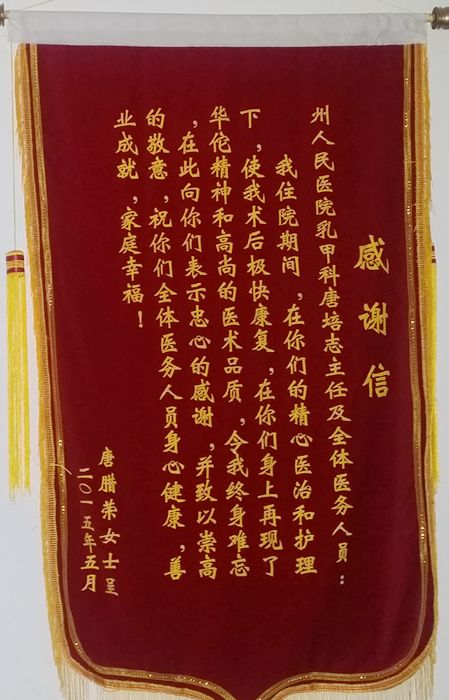 感谢信
州人民医院乳甲科唐培志主任及全体医务人员：
我住院期间，在你们的精心医治和护理
下，使我术后极快康复，在你们身上再现了
华佗精神和高尚的医术品质，令我终身难忘
，在此向你们表示忠心的感谢，并致以崇高
的敬意，祝你们全体医务人员身心健康，善
业成就，家庭幸福！
唐腊荣女士呈
二〇一五年五月